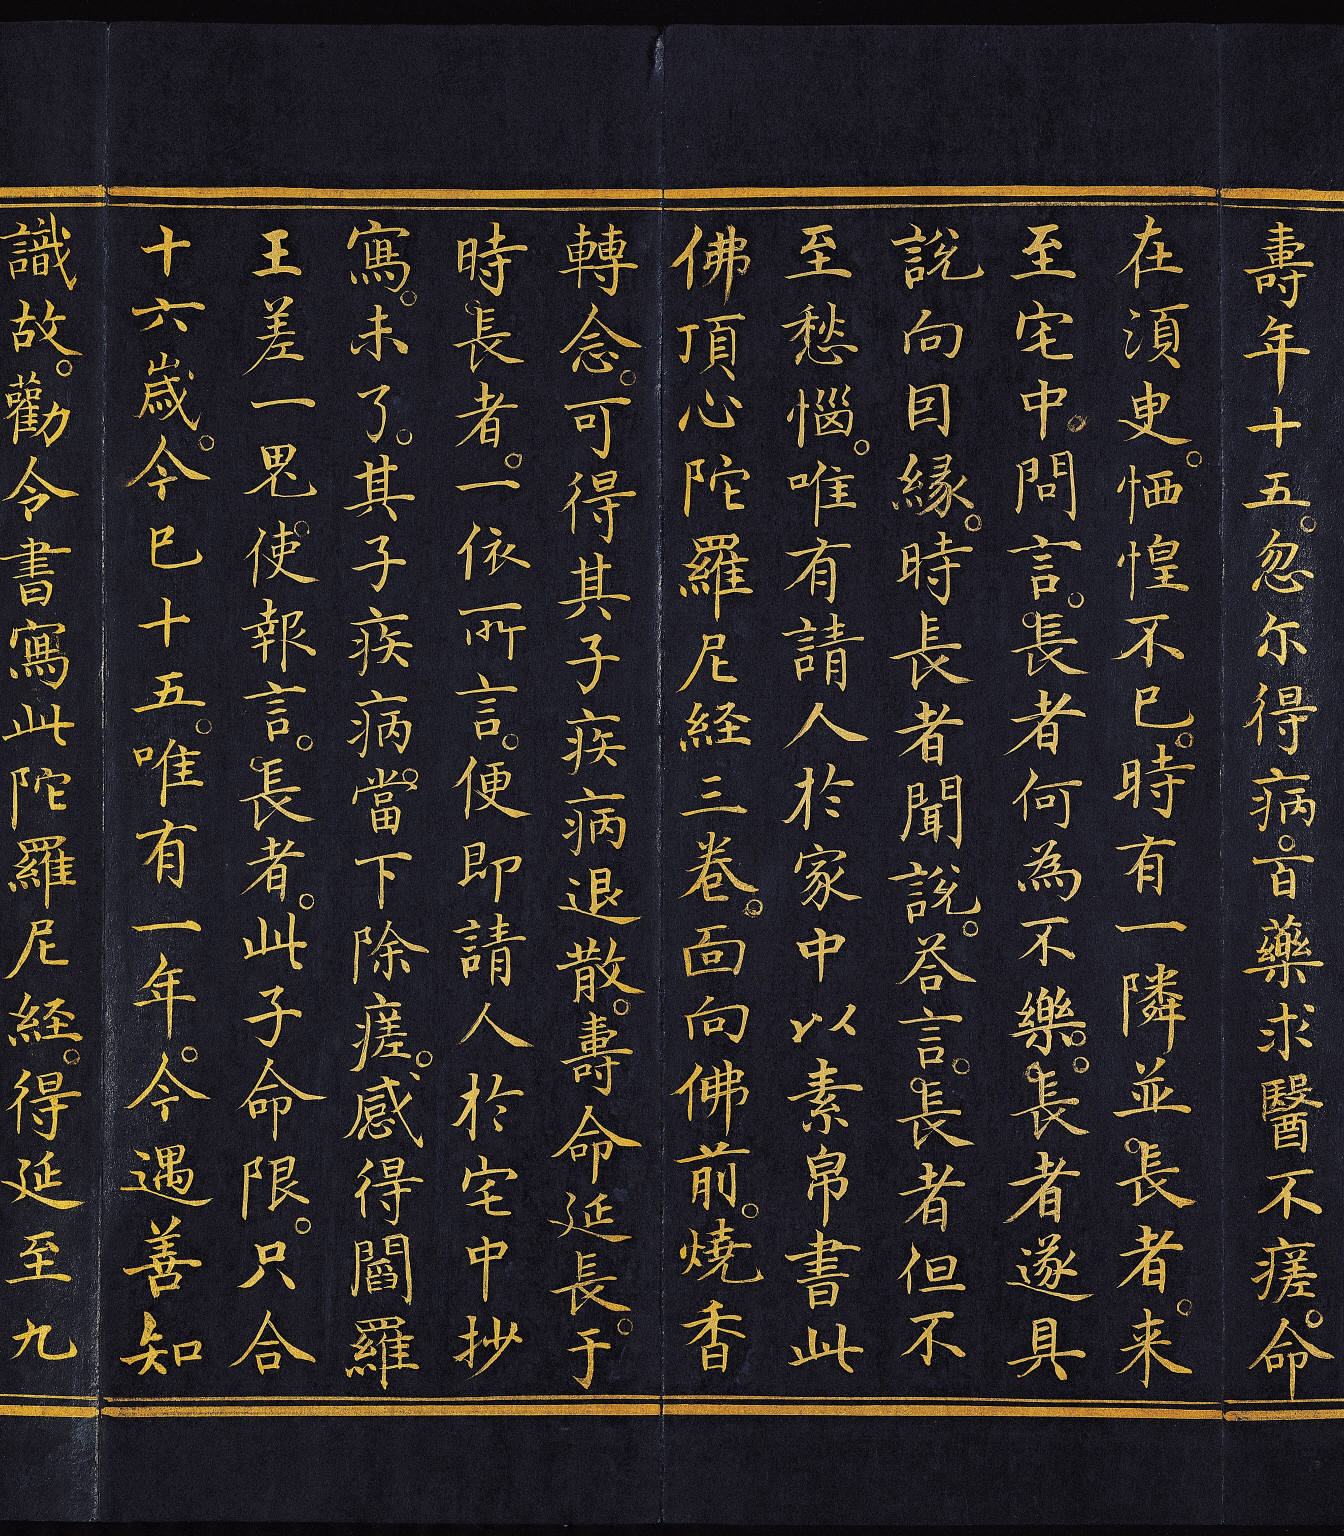 壽年十五。忽尔得病。百藥求醫不瘥。命
在湏臾。恓惶不已。時有一隣並長者。来
至宅中。問言。長者何為不樂。長者遂具
說向因緣。時長者聞說。荅言。長者但不
至愁惱。唯有請人於家中以素帛書此
佛頂心陀羅尼経三卷。面向佛前。燒香
轉念。可得其子疾病退散。壽命延長。于
時長者。一依所言。便即請人於宅中抄
寫。未了。其子疾病。當下除瘥。感得閻羅
王差一鬼使。報言。長者。此子命限。只合
十六歲。今已十五。唯有一年。今遇善知
識故。勸令書寫此陀羅尼経。得延至九